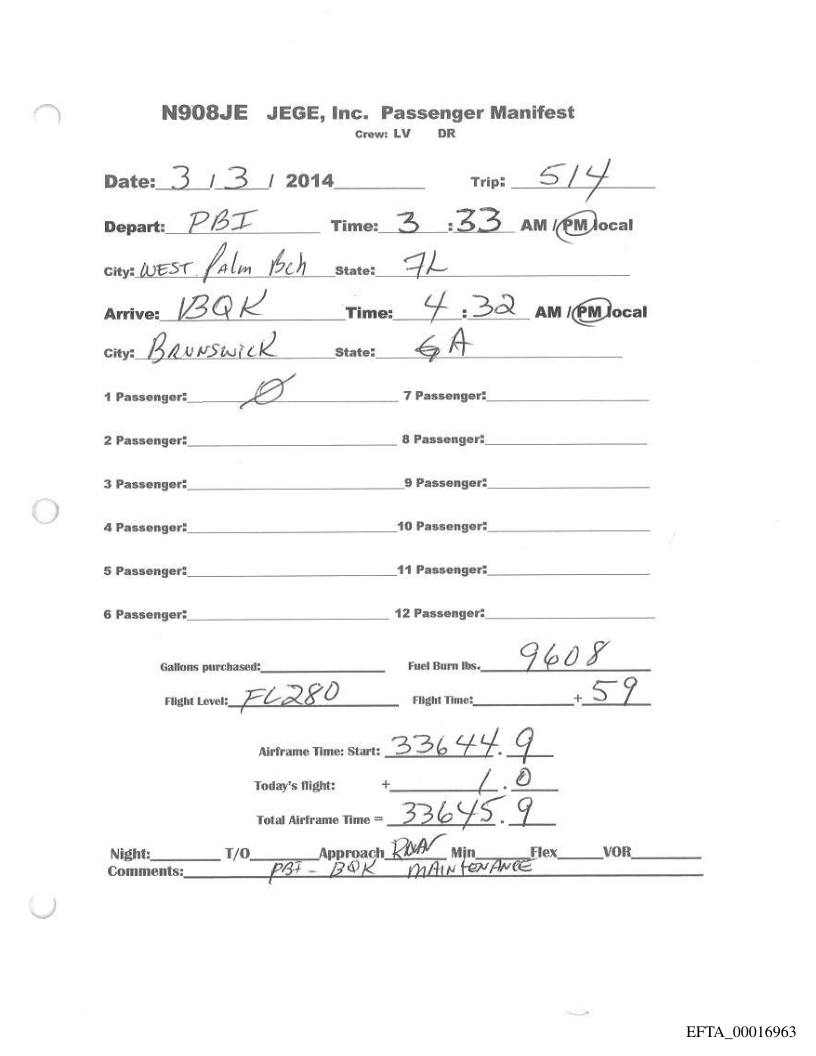 N908JE JEGE, Inc. Passenger Manifest
Crew: LV DR
Date: 3 / 3 / 2014 Trip: 514
Depart: PBI Time: 3 : 33 AM / PM local
City: WEST Palm Bch State: FL
Arrive: BQK Time: 4 : 32 AM / PM local
City: BRUNSWICK State: GA
1 Passenger: 0 7 Passenger:
2 Passenger: 8 Passenger:
3 Passenger: 9 Passenger:
4 Passenger: 10 Passenger:
5 Passenger: 11 Passenger:
6 Passenger: 12 Passenger:
Gallons purchased: Fuel Burn lbs. 9608
Flight Level: FL280 Flight Time: + 59
Airframe Time: Start: 33644.9
Today's flight: + 1.0
Total Airframe Time = 33645.9
Night: T/O Approach RNAV Min Flex VOR
Comments: PBI - BQK MAINTENANCE
EFTA_00016963